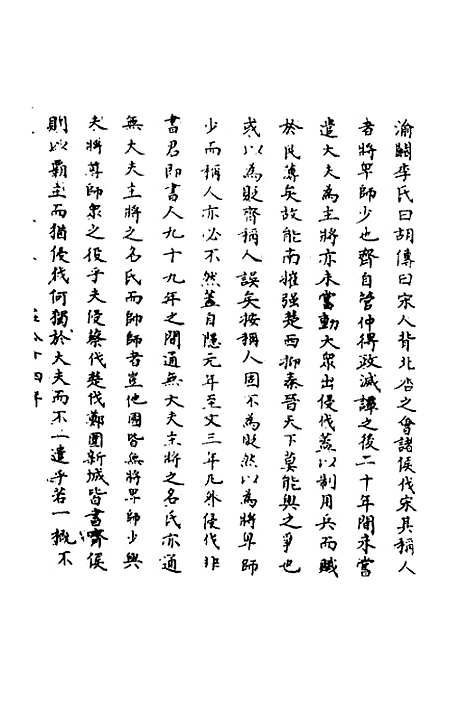 渝關李氏曰胡傳曰宋人背北杏之會諸侯伐宋其稱人
者將卑師少也齊自管仲得政滅譚之後二十年間未嘗
遣大夫為主將亦未嘗動大眾出侵伐蓋以制用兵而賦
於民薄矣故能南摧强楚西抑秦晉天下莫能與之爭也
或以為貶齊稱人誤矣按稱人固不為貶然以為將卑師
少而稱人亦必不然蓋自隱元年至文三年凡外侵伐非
書君即書人九十九年之間通無大夫主將之名氏亦通
無大夫主將之名氏而帥師者豈他國皆無將卑師少與
夫將尊師眾之役乎夫侵蔡伐楚伐鄭圍新城皆書齊侯
則以霸主而猶侵伐何獨於大夫而不一遣乎若一概不
莊公十四年